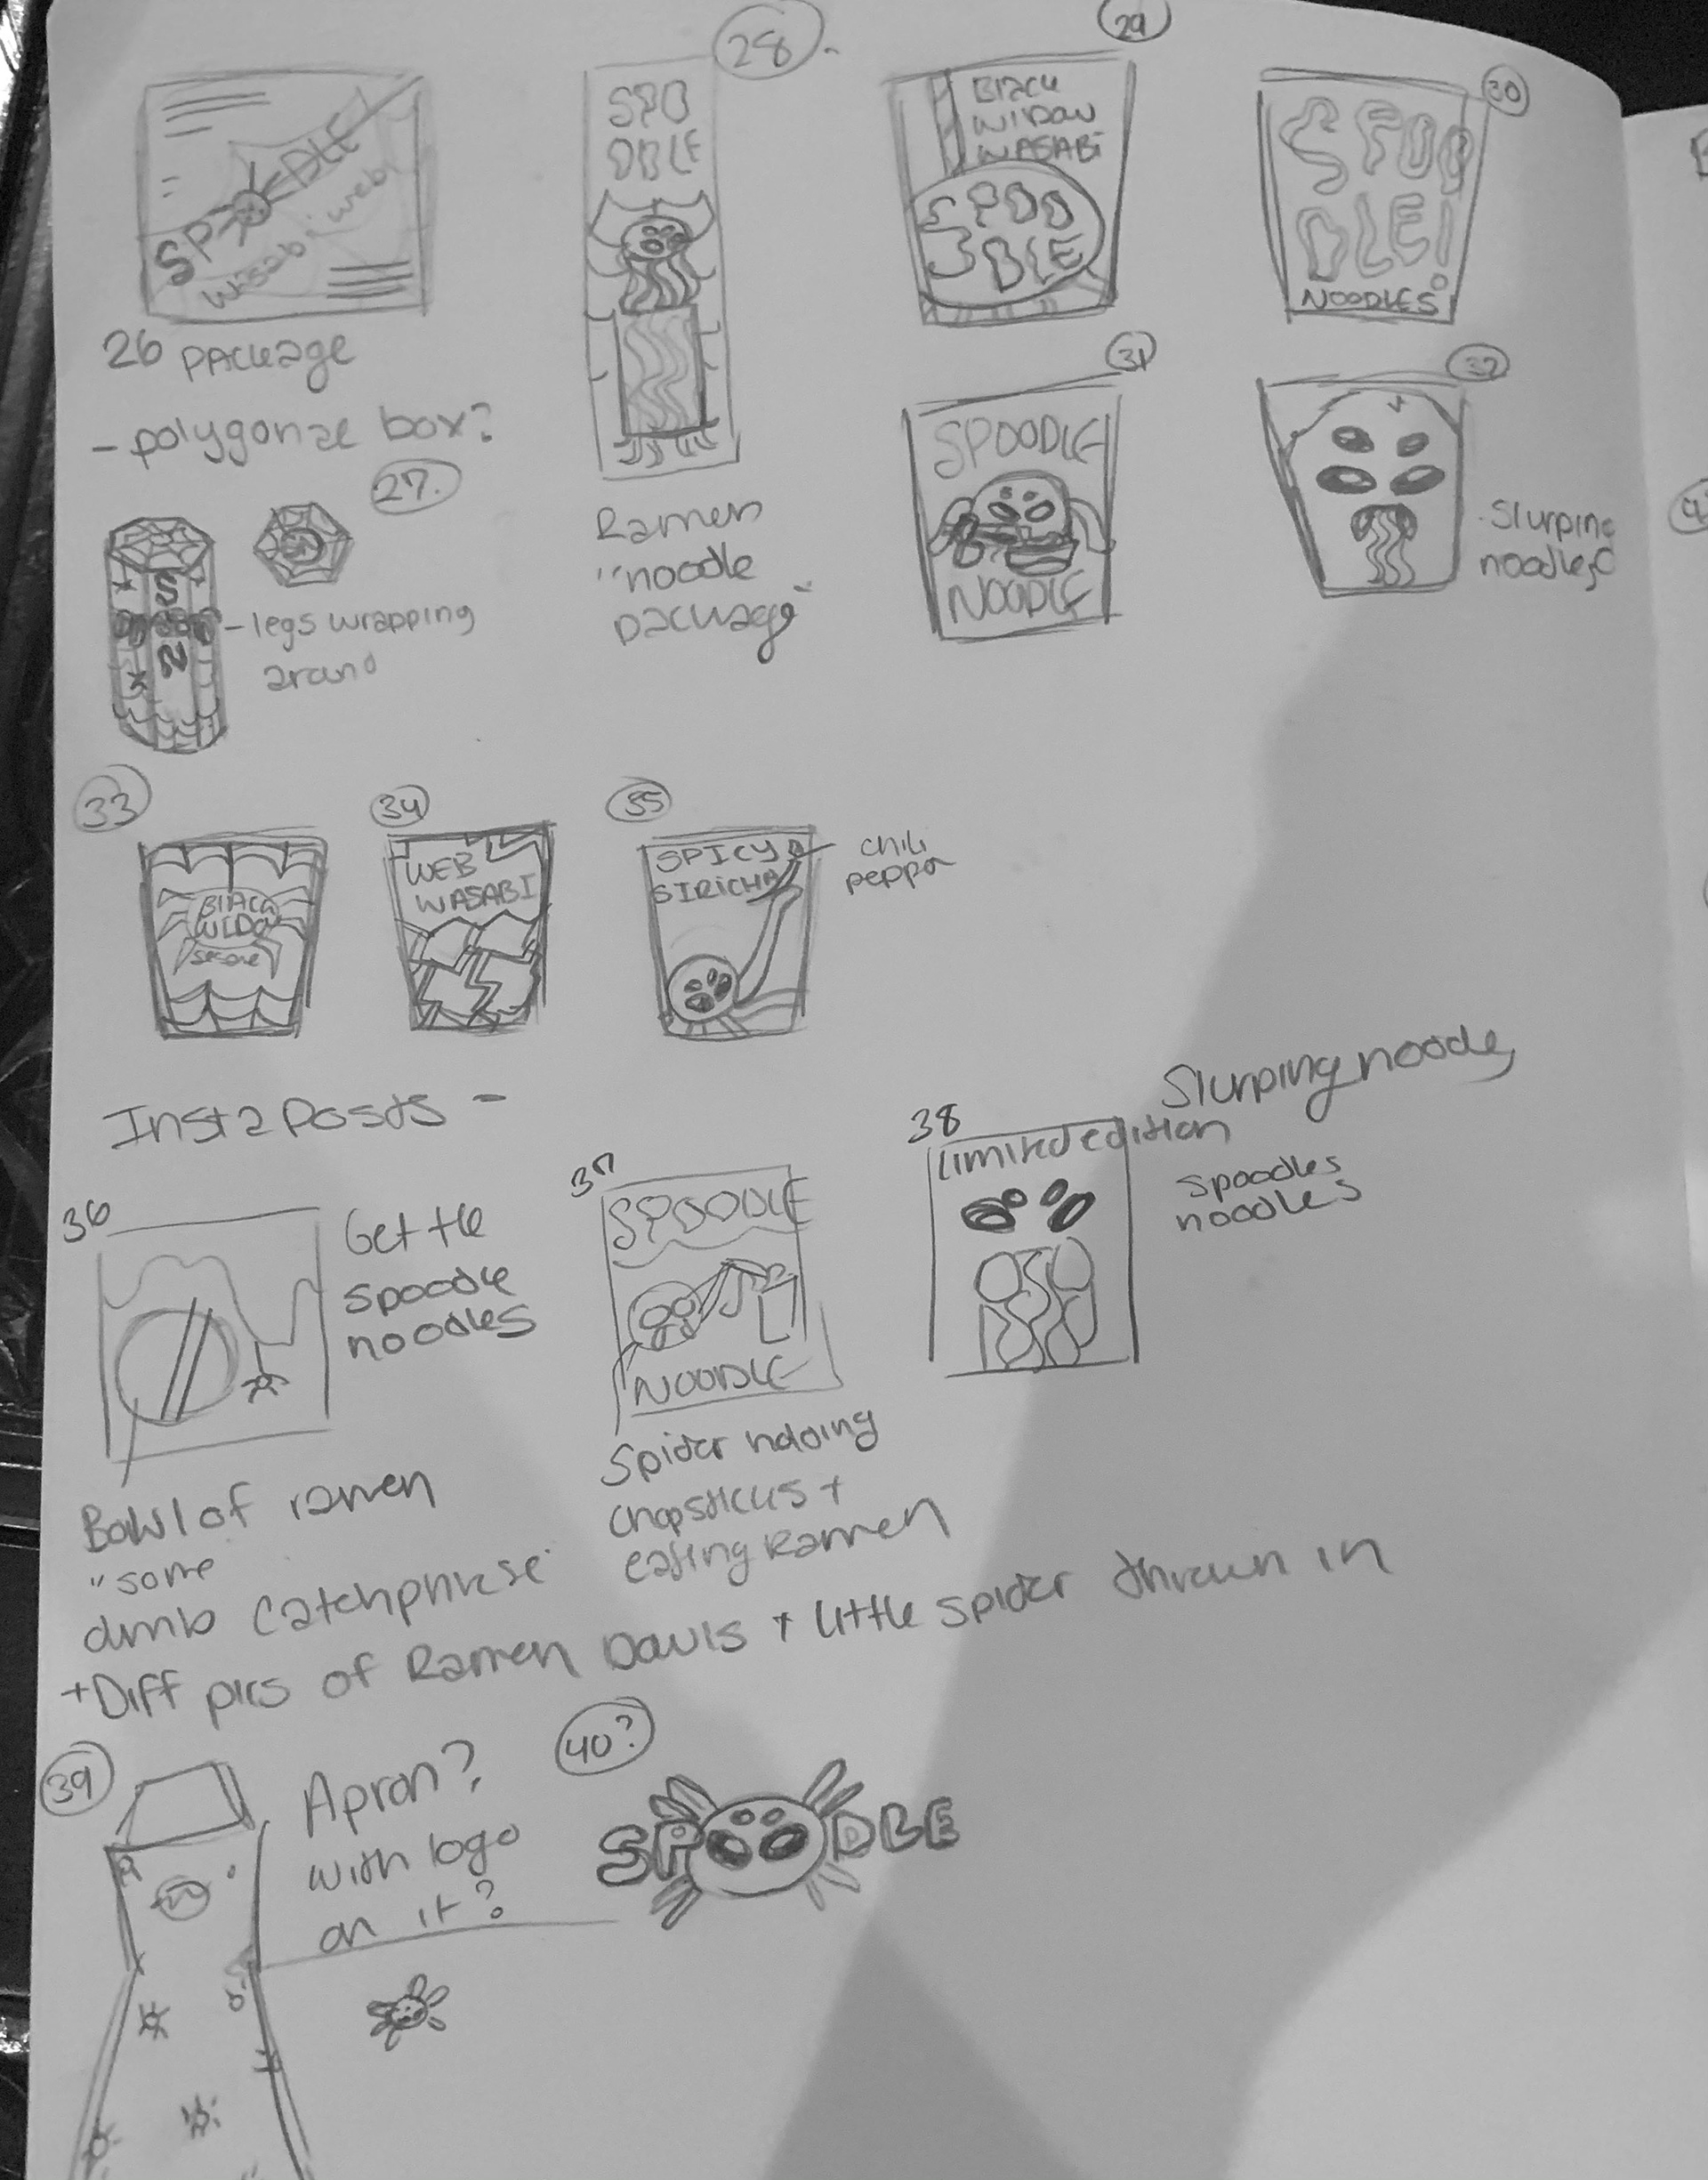 SP DLE
wasabi web
26 package
- polygonal box?
27.
S
N
- legs wrapping
around
28
SPO
ODLE
Ramen
"noodle
package"
29
Black
WIDOW
WASABi
SPOO
DLE
30
SPOO
DLE!
NOODLES
31
SPOODLE
NOODLE
32
Slurping
noodles
33
BLACK
WIDOW
34
WEB
WASABI
35
SPICY
SIRICHA
chili
pepper
Insta Posts -
36
Get the
spoodle
noodles
Bowl of ramen
"some
dumb catchphrase"
37
SPOODLE
NOODLE
Spider holding
chopsticks +
eating Ramen
38
limited edition
Slurping noodles
spoodles
noodles
+ Diff pics of Ramen Bowls + little spider thrown in
39
Apron?
with logo
on it?
40?
SPOODLE